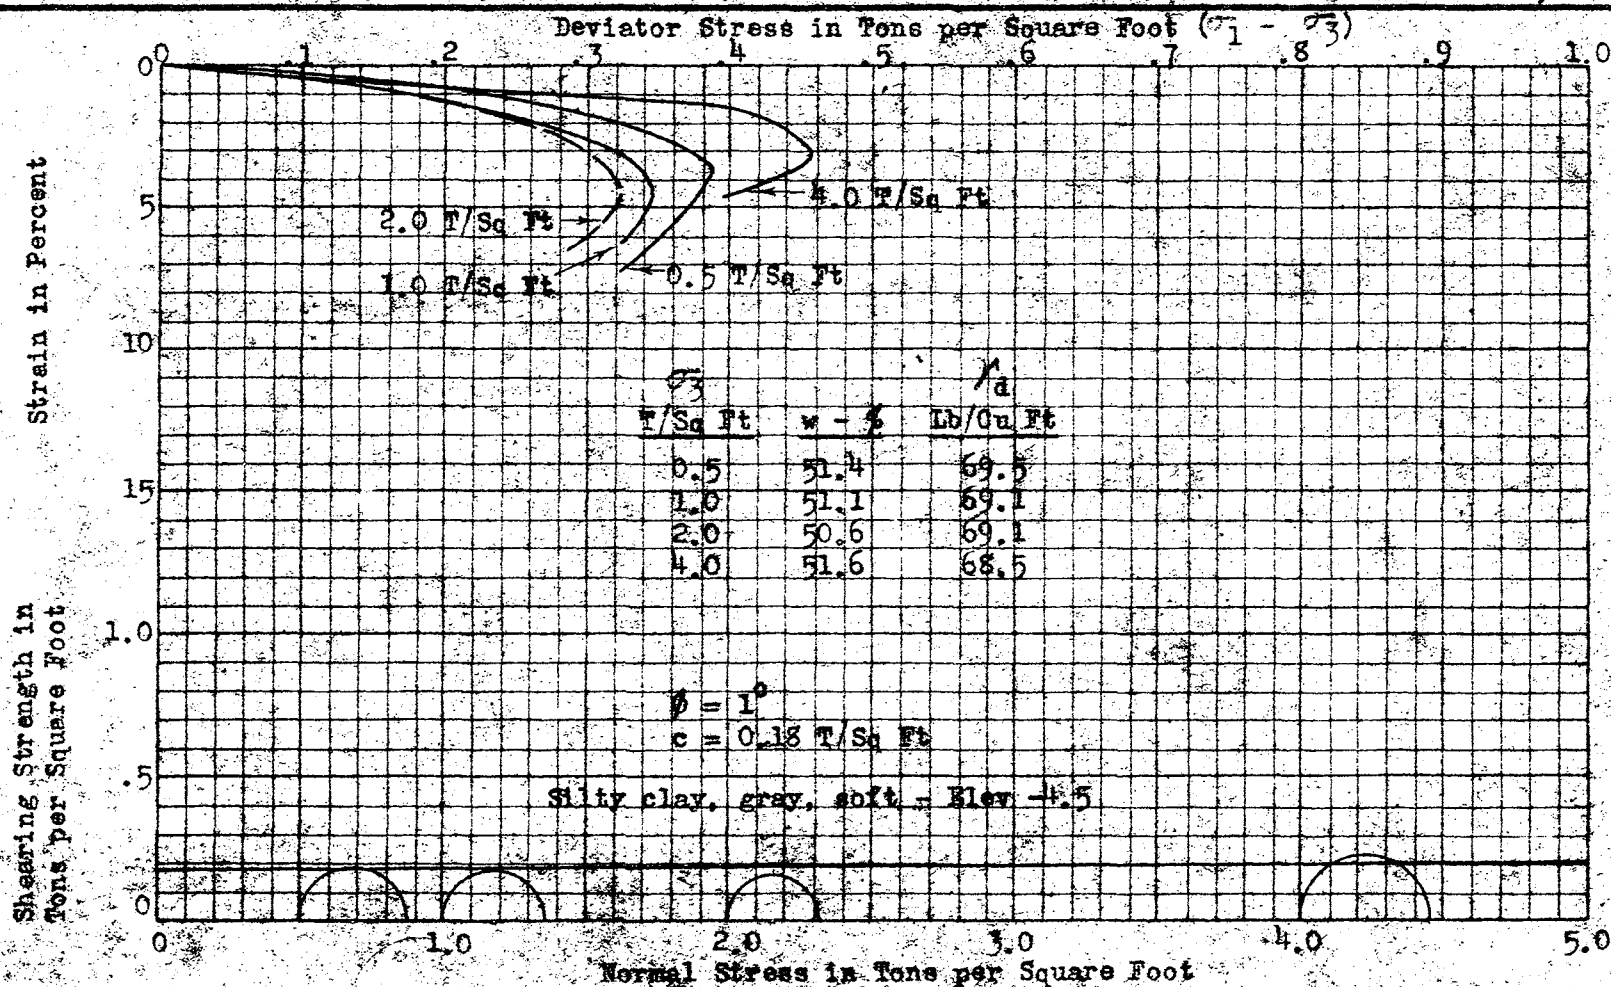 Deviator Stress in Tons per Square Foot (σ1 - σ3)
0 .1 .2 .3 .4 .5 .6 .7 .8 .9 1.0
0
5
10
15
Strain in Percent
4.0 T/Sq Ft
2.0 T/Sq Ft
1.0 T/Sq Ft
0.5 T/Sq Ft
σ3 γd
T/Sq Ft w - % Lb/Cu Ft
0.5 51.4 69.5
1.0 51.1 69.1
2.0 50.6 69.1
4.0 51.6 68.5
1.0
.5
0
Shearing Strength in
Tons per Square Foot
ϕ = 1°
c = 0.18 T/Sq Ft
Silty clay, gray, soft - Elev -4.5
0 1.0 2.0 3.0 4.0 5.0
Normal Stress in Tons per Square Foot